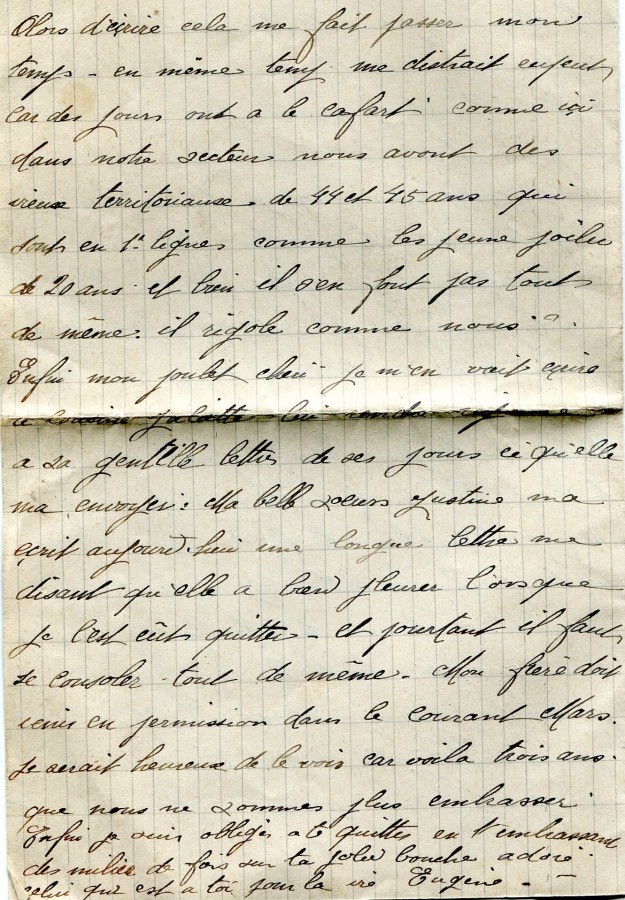 Alors d'écrire cela me fait passer mon
temps - en même temp me distrait
car des jours ont a le cafart comme ici
dans notre secteur nous avont des
vieux territoriause de 44 et 45 ans qui
sont en 1e lignes comme les jeune poilu
de 20 ans et bien il s'en font pas tout
de même. il rigole comme nous.
Enfin mon poulet cheri je m'en vait écrire
a cousine juliette lui rendre
a sa gentille lettre de ses jours ci qu'elle
m'a envoyer: Ma belle soeurs Justine ma
écrit aujourd'hui une longue lettre me
disant qu'elle a bien pleurer l'orsque
je l'est eût quitter - et pourtant il faut
se consoler tout de même - Mon frère doit
venir en permission dans le courant Mars.
Je serait heureux de le voir car voila trois ans.
que nous ne sommes plus embrasser
Enfin je suis obligés a te quitter en t'embrassant
des milier de fois sur ta jolie bouche adoré
celui qui est a toi pour la vie Eugène -